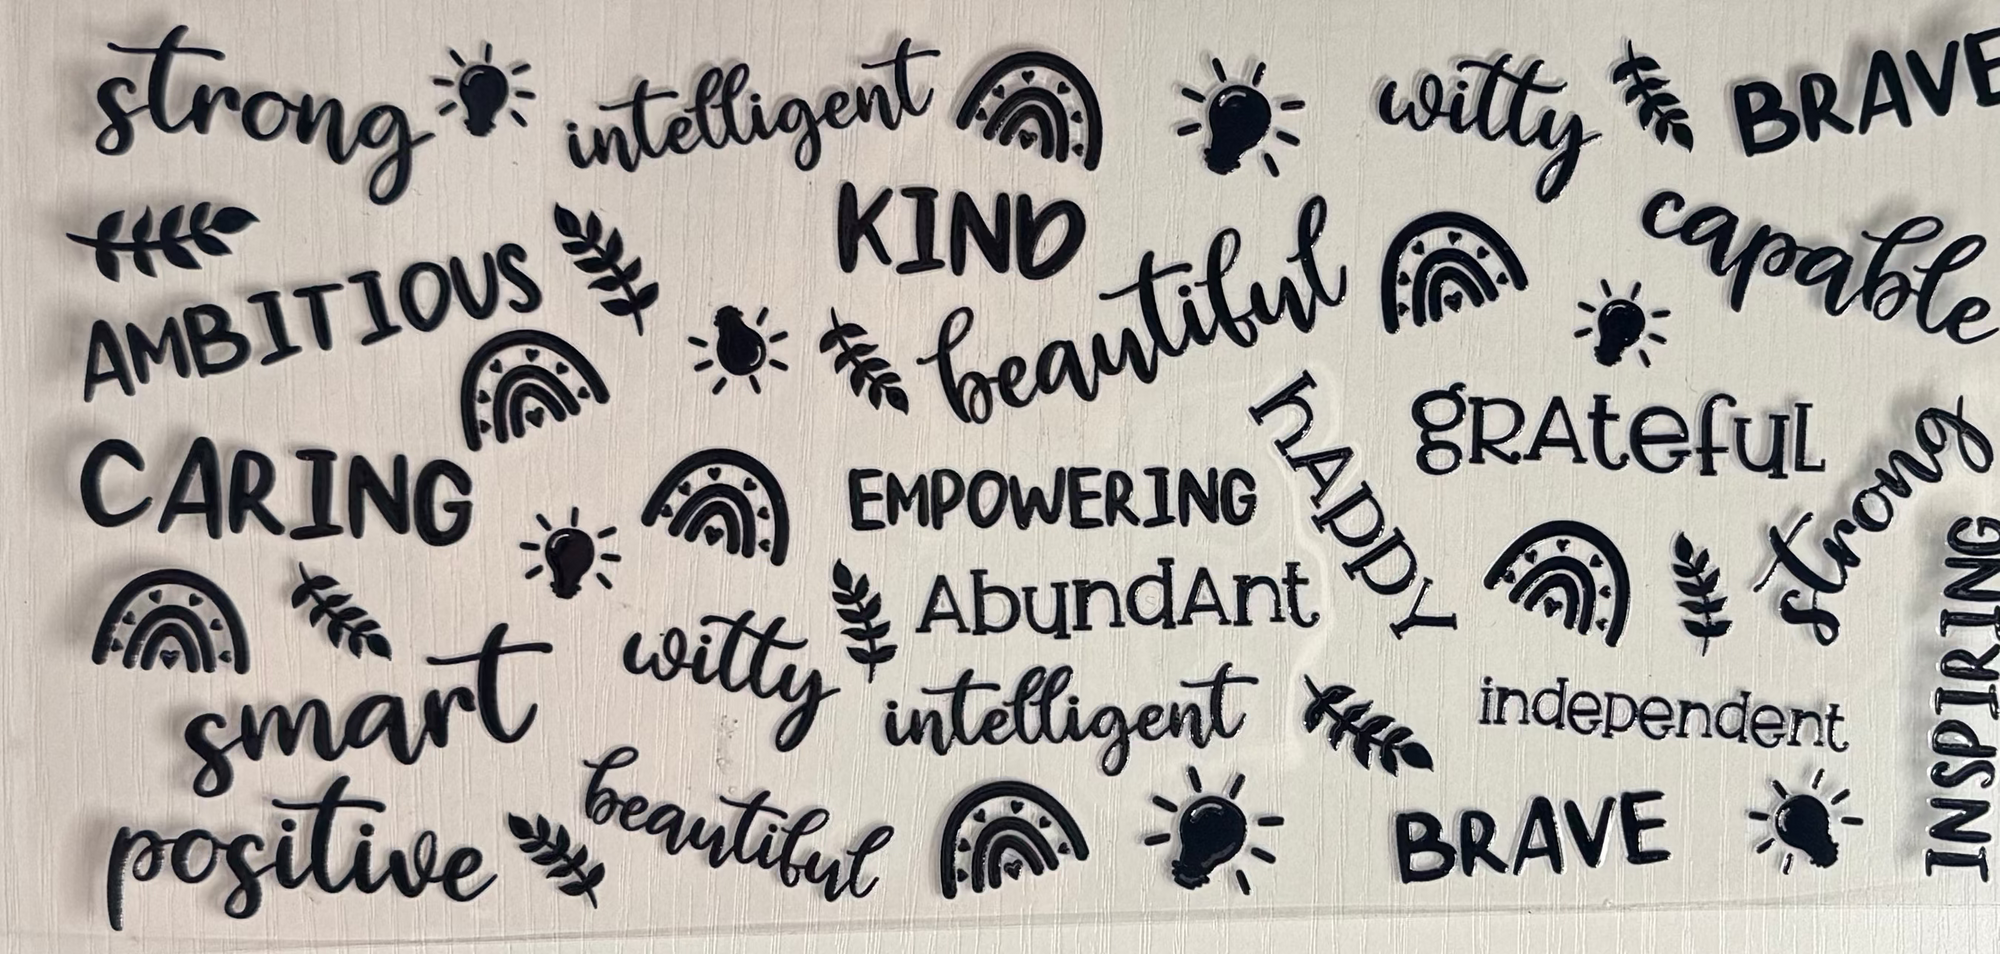 strong
intelligent
witty
BRAVE
KIND
capable
AMBITIOUS
beautiful
hAPPY
gRAtefuL
CARING
EMPOWERING
strong
AbundAnt
INSPIRING
smart
witty
intelligent
independent
positive
beautiful
BRAVE